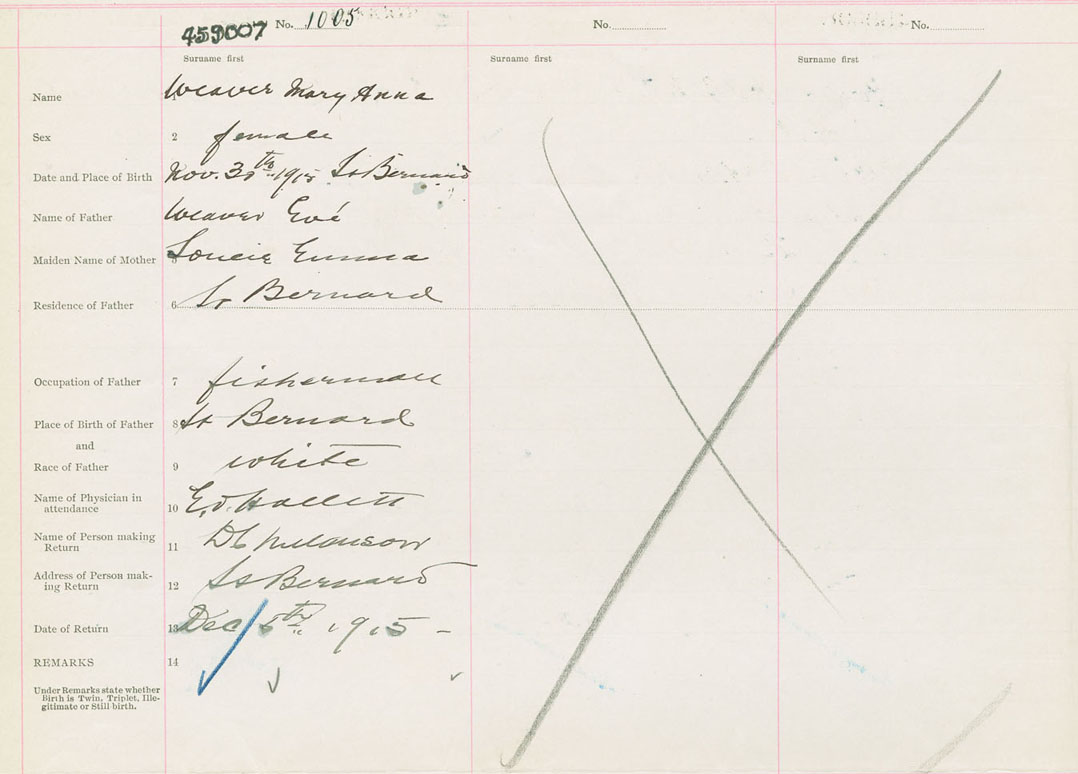 459007 No. 1005 No. No.
Surname first Surname first Surname first
Name Weaver Mary Anna
Sex 2 female
Date and Place of Birth Nov. 30th 1915 St Bernard
Name of Father Weaver Evé
Maiden Name of Mother 5 Emma
Residence of Father 6 St Bernard
Occupation of Father 7 fisherman
Place of Birth of Father 8 St Bernard
and
Race of Father 9 white
Name of Physician in
attendance 10 E.V. Hallett
Name of Person making
Return 11 Melanson
Address of Person mak-
ing Return 12 St Bernard
Date of Return 13 Dec 5th 1915 -
REMARKS 14
Under Remarks state whether
Birth is Twin, Triplet, Ille-
gitimate or Still birth.